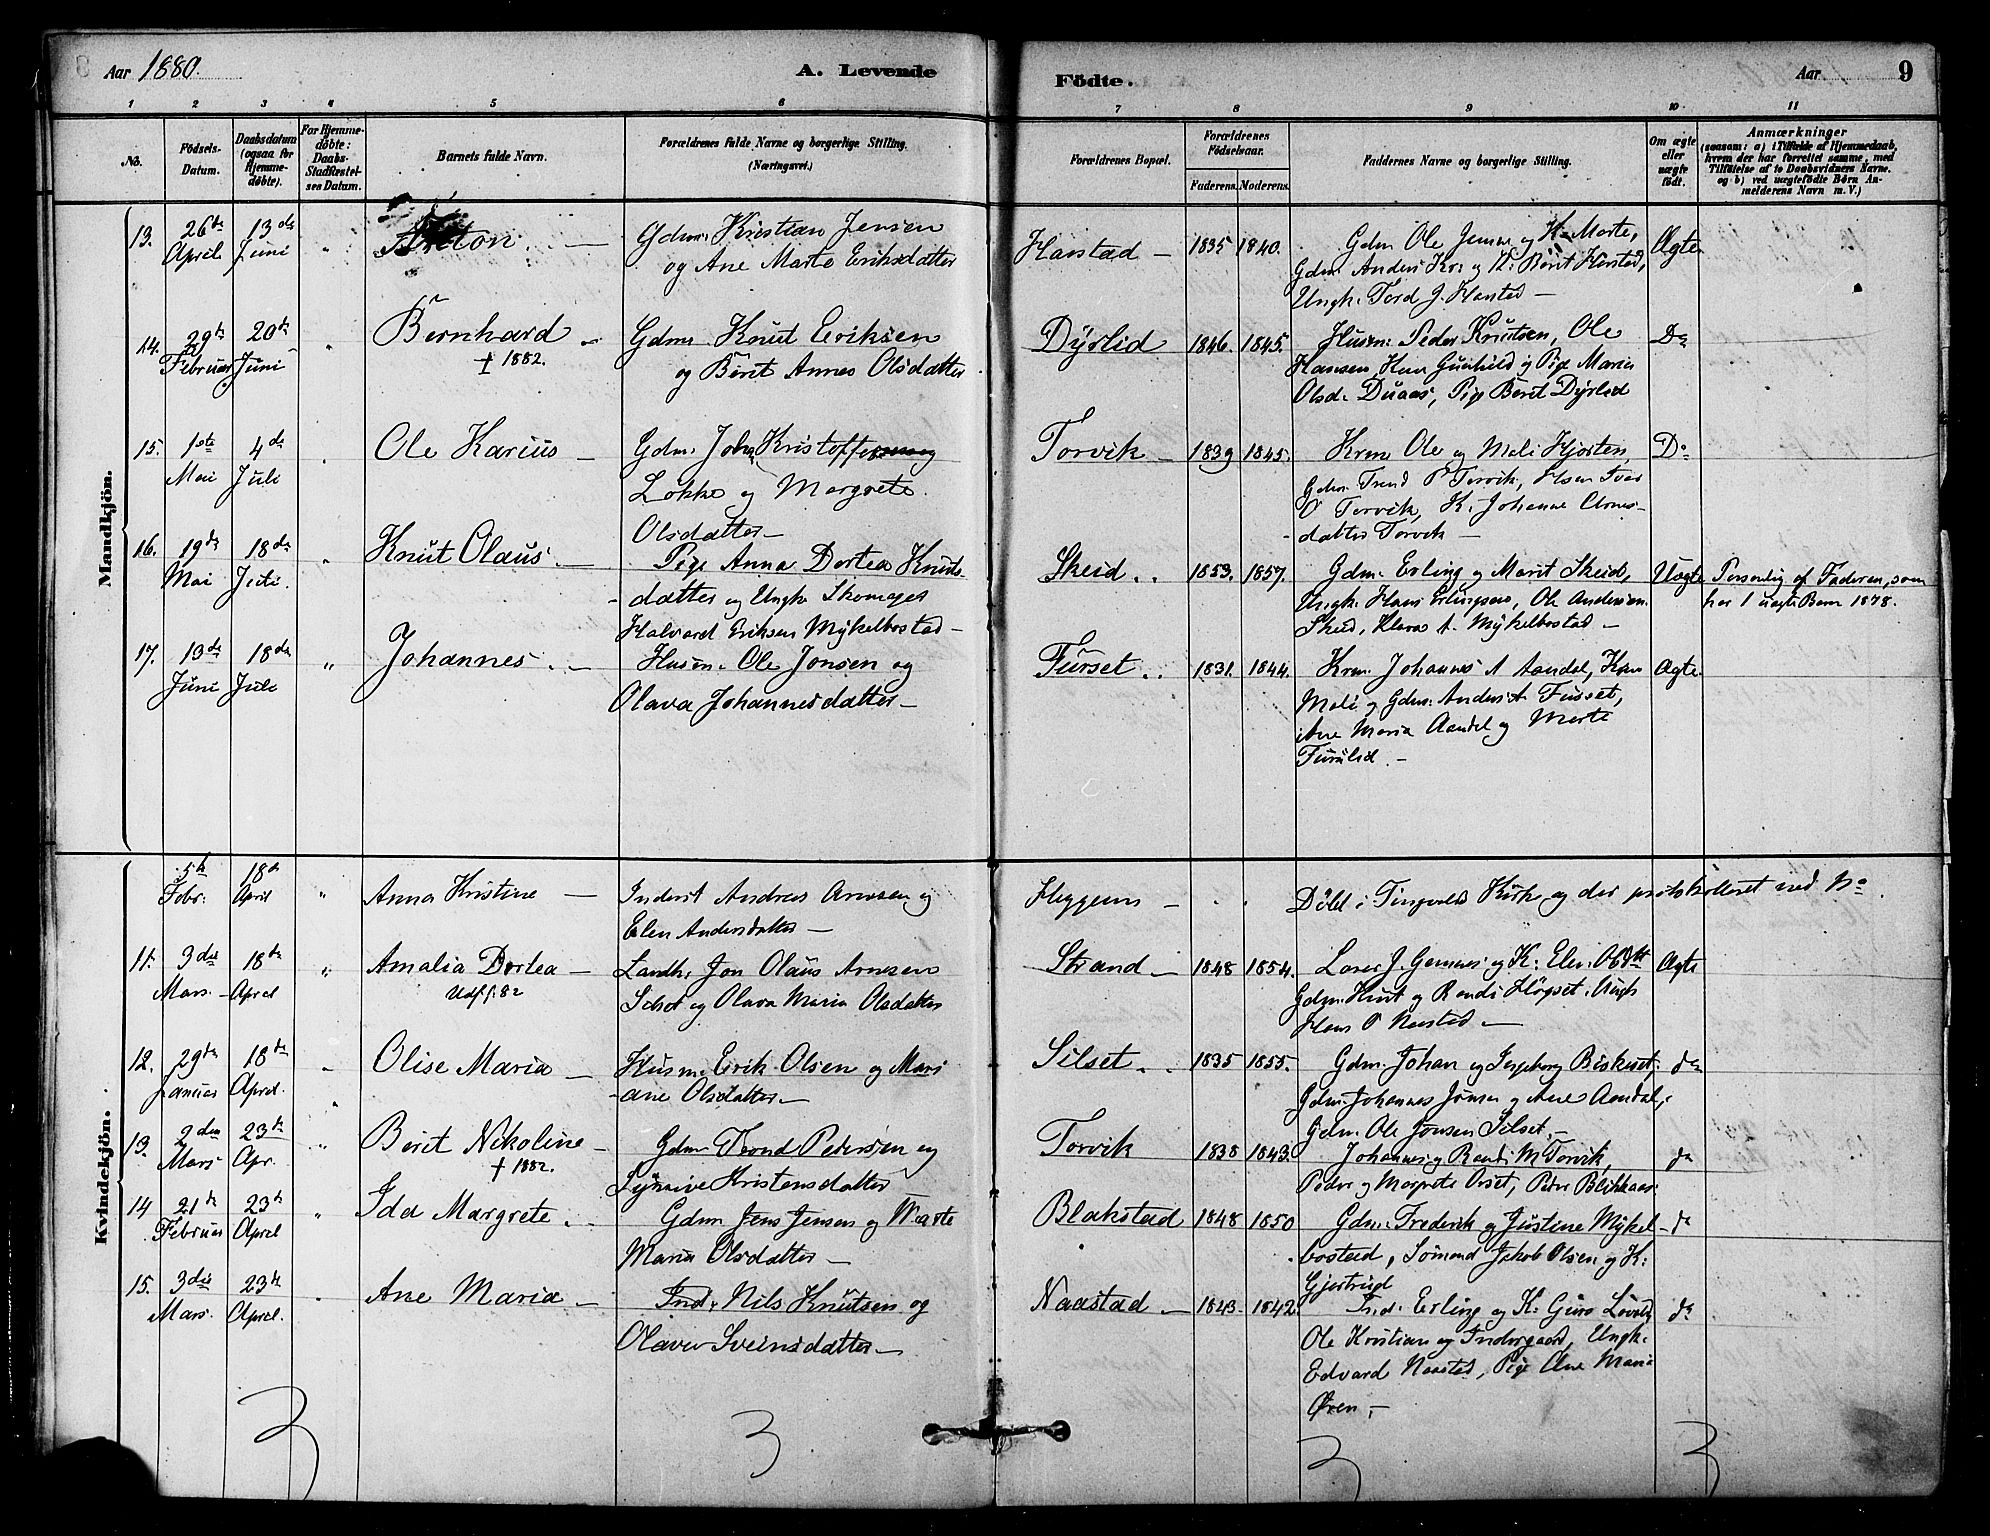 Aar 1880.
A. Levende
Födte.
Aar
9
1 2 3 4 5 6 7 8 9 10 11
No.
Födsels-Datum.
Daabsdatum (ogsaa for Hjemme-döbte).
For Hjemme-döbte: Daabs-Stadfæstel-ses Datum.
Barnets fulde Navn.
Forældrenes fulde Navne og borgerlige Stilling. (Næringsvei.)
Forældrenes Bopæl.
Forældrenes Födselsaar.
Faderens. Moderens.
Faddernes Navne og borgerlige Stilling.
Om ægte eller uægte födt.
Anmærkninger
(saasom: a) i Tilfælde af Hjemmedaab, hvem der har forrettet samme, med Tilföielse af to Daabsvidners Navne. og b) ved uægtefödte Börn An-melderens Navn m. V.)
Mandkjön.
13. 26de April 13de Juni " Anton. — Gdm. Kristian Jensen
og Ane Marte Eriksdatter
Harstad — 1835 1840. Gdm Ole Jensen og K. Marte,
Gdm. Anders Krs og K. Berit Harstad,
Ungk. Tord J. Harstad —
Ægte
14. 29de Februar 20de Juni " Bernhard —
† 1882.
Gdm. Knut Eriksen
og Berit Annes Olsdatter
Dyrlid 1846. 1845. Husm. Peder Knutsen, Ole
Hansen, Kone Gunhild og Pige Maria
Olsd. Duaas, Pige Berit Dyrlid
Do
15. 1ste Mai 4de Juli " Ole Karius — Gdm. John Kristoffersen og
Løkke og Margrete
Olsdatter —
Torvik — 1839 1845. Krm Ole og Meli Hjorten,
Gdm. Trond P Torvik, Husm Iver
O Torvik, K. Johanne Arnes-
datter Torvik —
Do
16. 19de Mai 18de Juli. " Knut Olaus — Pige Anna Dortea Knuts-
datter og Ungk. Skomager
Halvard Eriksen Mykelbostad —
Skeid .. 1853. 1857. Gdm. Erling og Marit Skeid,
Ungk. Hans Erlingsen, Ole Andersen
Skeid, Klara A. Mykelbostad —
Uægte Personlig af Faderen, som
har 1 uægte Barn 1878.
17. 13de Juni 18de Juli " Johannes. — Husm. Ole Jonsen og
Olava Johannesdatter —
Furset .. 1831. 1844. Krm. Johannes A Aandal, Kone
Meli og Gdm. Anders A Furset,
Ane Maria Aandal og Marte
Furulid. —
Ægte
Kvindekjön.
5te Febr. 18de April " Anna Kristine — Inderst Andreas Arnesen og
Elen Andersdatter —
Heggem — . . Döbt i Tingvold Kirke og der protokolleret ved No
11. 3die Mars. 18de April " Amalia Dortea —
Udf. f. 82
Landh. Jon Olaus Arnesen
Silset og Olava Maria Olsdatter
Strand — 1848 1854. Lars J. Gumnes og K. Elen Olsdtr
Gdm. Knut og Randi Høgset. Ungk
Hans P Naastad —
Ægte
12. 29de Januar 18de April. " Olise Maria — Husm. Erik Olsen og Mari-
ane Olsdatter. —
Silset .. 1835 1855. Gdm. Johan og Ingeborg Biskeset,
Gdm. Johannes Jonsen og Ane Aandal,
Gdm. Ole Jonsen Silset. —
do
13. 2den Mars 23de Apr. " Berit Nikoline —
† 1882.
Gdm Trond Pedersen og
Synnive Kristensdatter
Torvik 1838 1843. Johannes og Randi M Torvik,
Peder og Margrete Orset, Peder Blikaas
do
14 21de Februar 23de April " Ida Margrete. — Gdm. Jens Jensen og Marte
Maria Olsdatter —
Blakstad 1848 1850 Gdm. Frederik og Justine Mykel-
bostad, Sømand Jakob Olsen og K.
Gjertrud
do
15. 3die Mars. 23de April. " Ane Maria — Ind. Nils Knutsen og
Olava Sveinsdatter —
Naastad — 1843. 1842. Ind. Erling og K. Guro Løvik,
Ole Kristian og Indergaard, Ungk.
Edvard Naastad, Pige Ane Maria
Øren, —
do
3 3 3 3